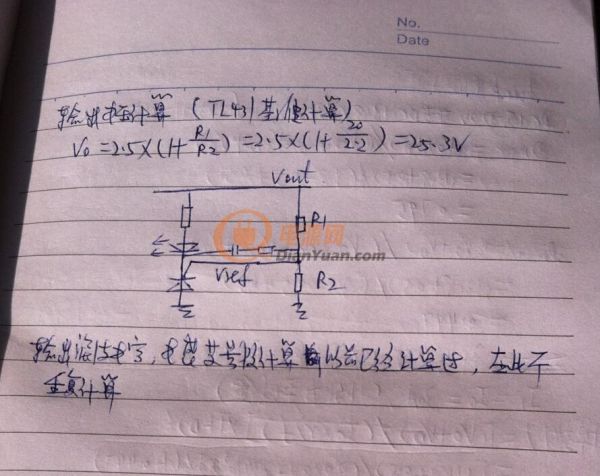 No.
Date
输出电压计算 (TL431基准计算)
Vo=2.5×(1+R1/R2)=2.5×(1+20/2.2)=25.3V
Vout
R1
电源网
DianYuan.com
Vref
R2
输出滤波电容,电感等计算以前已经计算过,在此不
重复计算